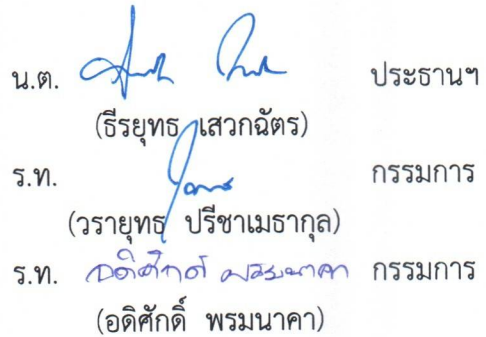 น.ต. ประธานฯ
(ธีรยุทธ เสวกฉัตร)
ร.ท. กรรมการ
(วรายุทธ ปรีชาเมธากุล)
ร.ท. อดิศักดิ์ พรมนาคา กรรมการ
(อดิศักดิ์ พรมนาคา)